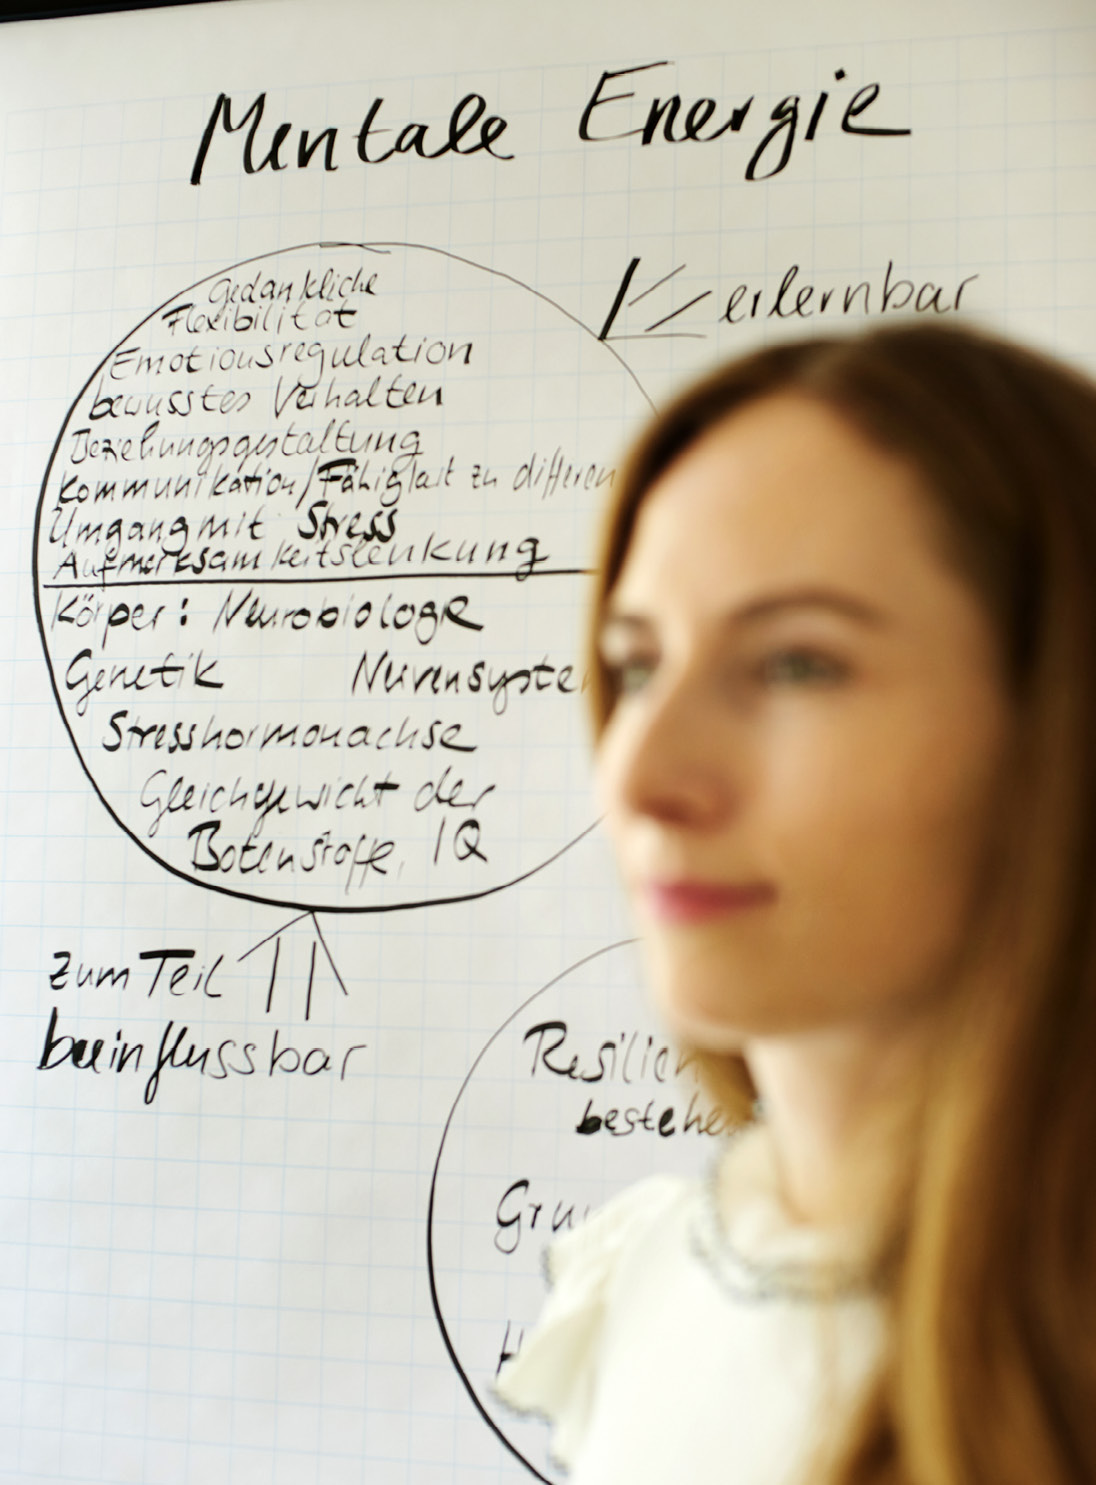 Mentale Energie
erlernbar
Gedankliche
Flexibilität
Emotionsregulation
bewusstes Verhalten
Beziehungsgestaltung
Kommunikation/Fähigkeit zu differen
Umgang mit Stress
Aufmerksamkeitslenkung
Körper: Neurobiologie
Genetik Nervensyste
Stresshormonachse
Gleichgewicht der
Botenstoffe, IQ
zum Teil
beeinflussbar
Resilien
bestehe
Gru
H